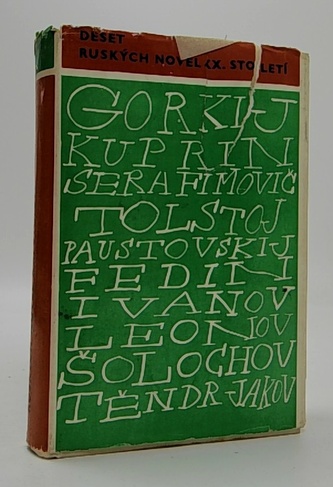 DESET
RUSKÝCH NOVEL XX. STOLETÍ
GORKIJ
KUPRIN
SERAFIMOVIČ
TOLSTOJ
PAUSTOVSKIJ
FEDIN
IVANOV
LEONOV
ŠOLOCHOV
TĚNDRJAKOV